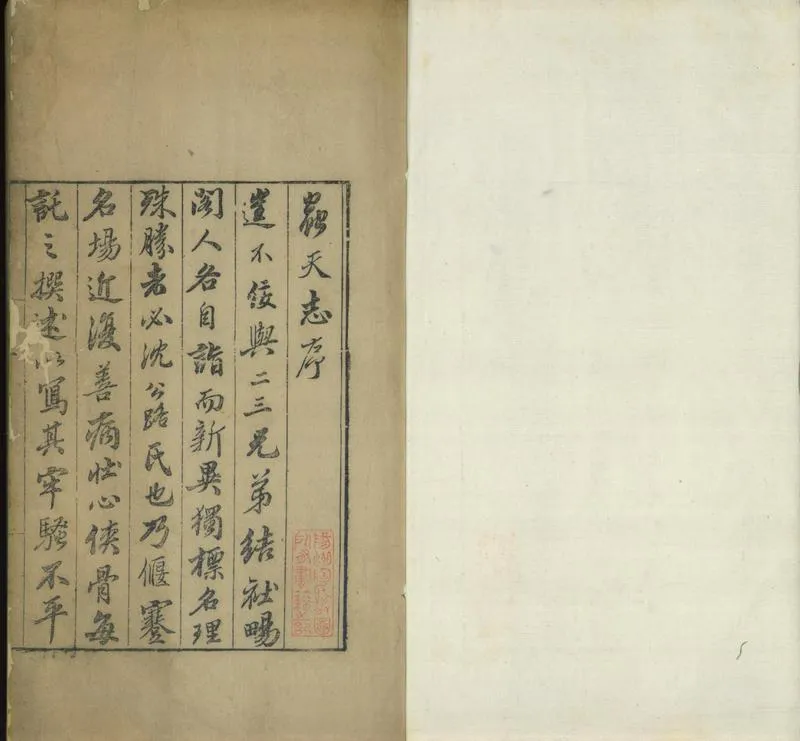 蟲天志序
不佞與二三兄弟結社暘
閣人各自詣而新異獨標名理
殊勝者必沈公路氏也乃偃蹇
名場近復善病壯心俠骨每
託之撰述以寫其牢騷不平
5